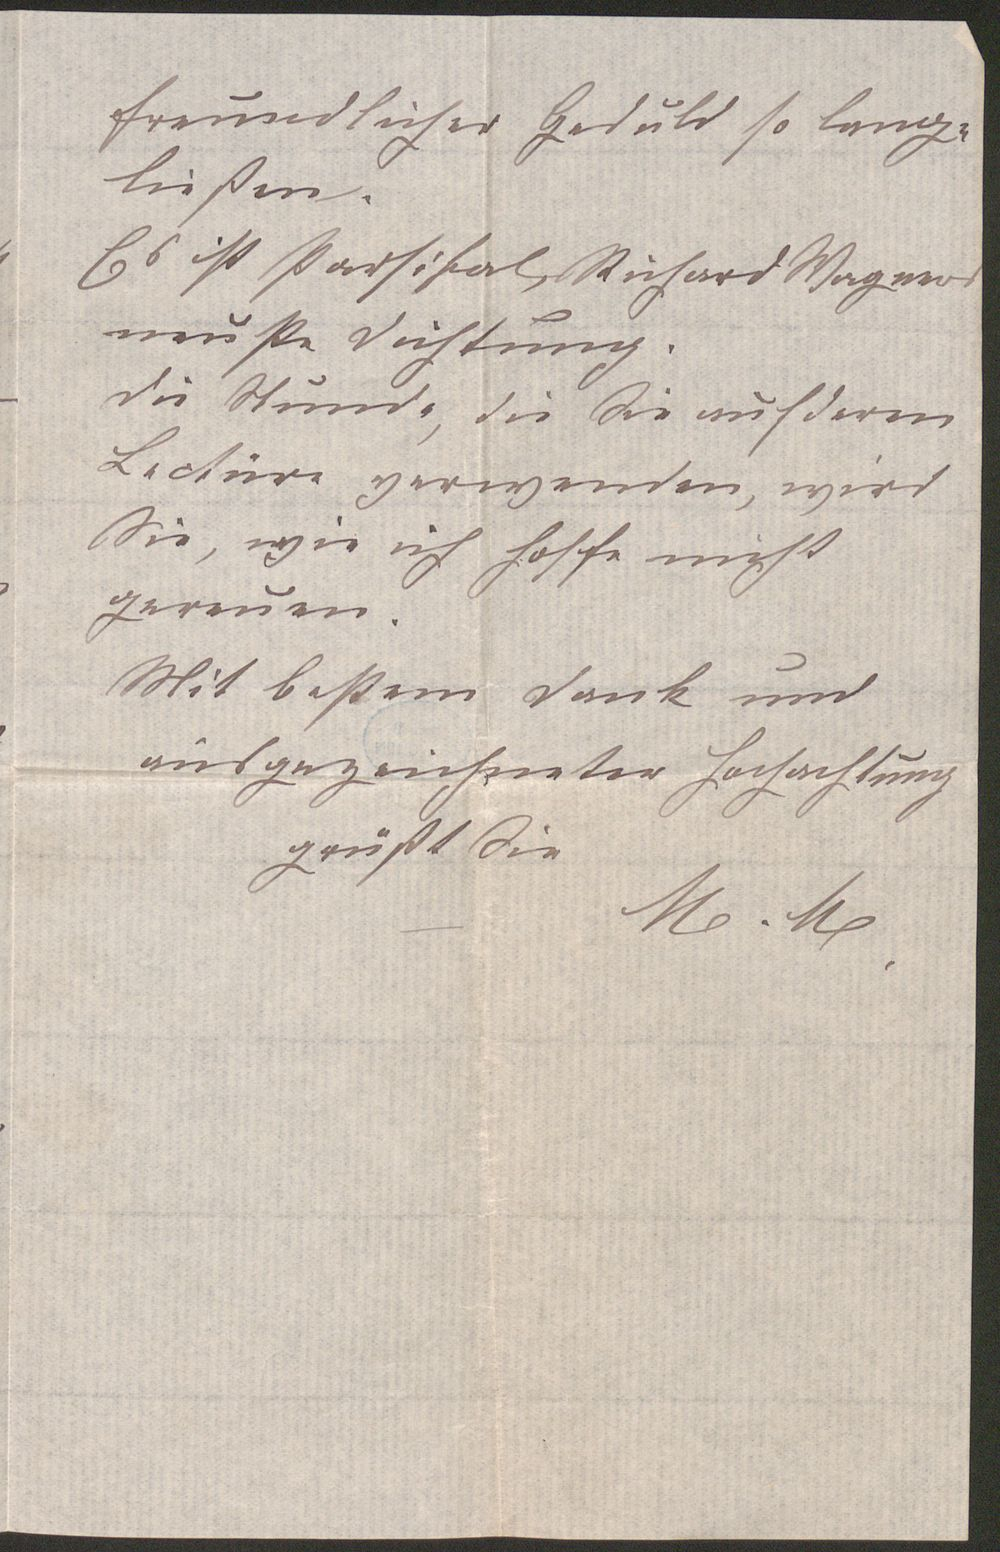 freundlicher Geduld so lange
ließen.
Es ist Parsifal, Richard Wagners
neuste Dichtung.
Die Stunde, die Sie auf deren
Lectüre verwenden, wird
Sie, wie ich hoffe nicht
gereuen.
Mit bestem Dank und
ausgezeichneter Hochachtung
grüßt Sie
M. M.